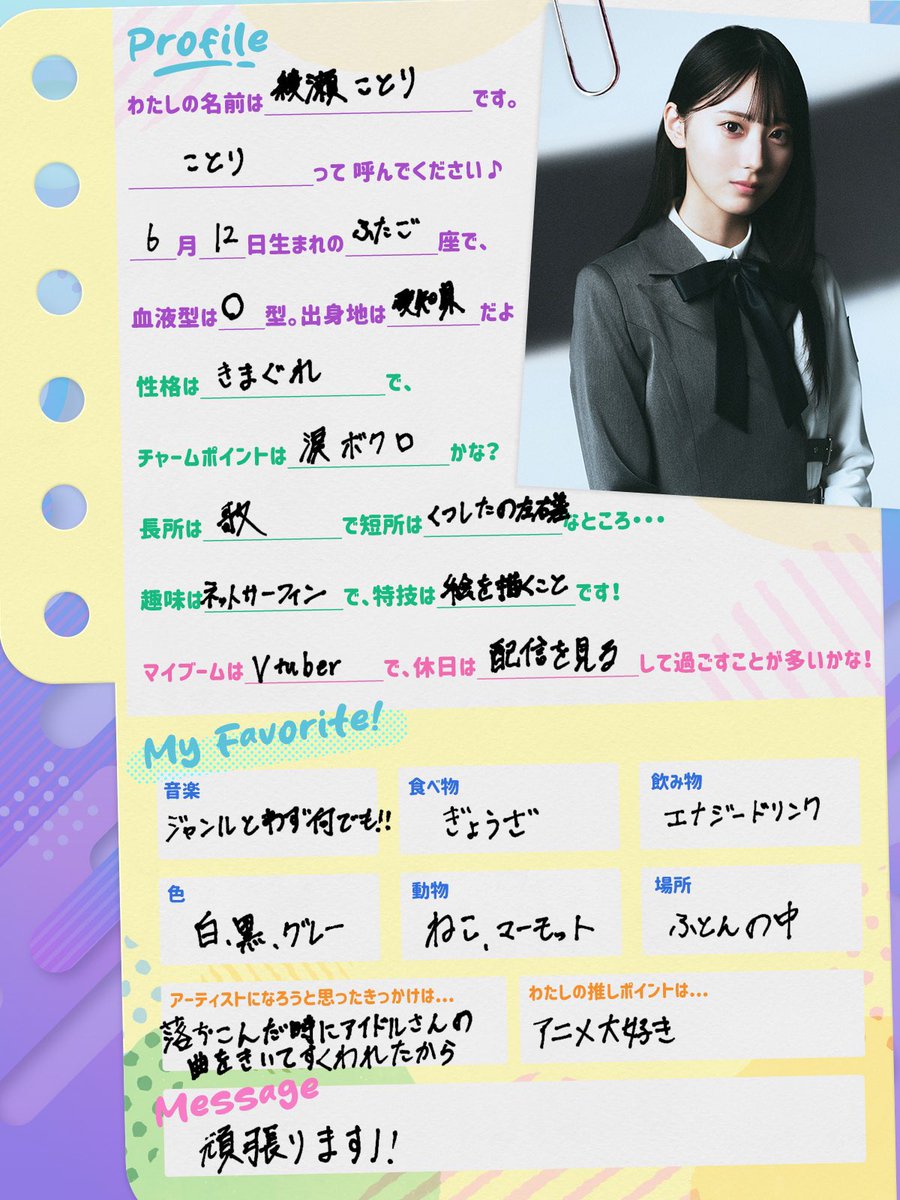 Profile
わたしの名前は綾瀬ことりです。
ことりって呼んでください♪
6月12日生まれのふたご座で、
血液型は○型。出身地は愛知県だよ
性格はきまぐれで、
チャームポイントは涙ボクロかな？
長所は歌で短所はくつしたの左右なところ・・・
趣味はネットサーフィンで、特技は絵を描くことです！
マイブームはVtuberで、休日は配信を見るして過ごすことが多いかな！
My Favorite!
音楽
ジャンルとわず何でも!!
食べ物
ぎょうざ
飲み物
エナジードリンク
色
白、黒、グレー
動物
ねこ、マーモット
場所
ふとんの中
アーティストになろうと思ったきっかけは...
落ちこんだ時にアイドルさんの
曲をきいてすくわれたから
わたしの推しポイントは...
アニメ大好き
Message
頑張ります!!